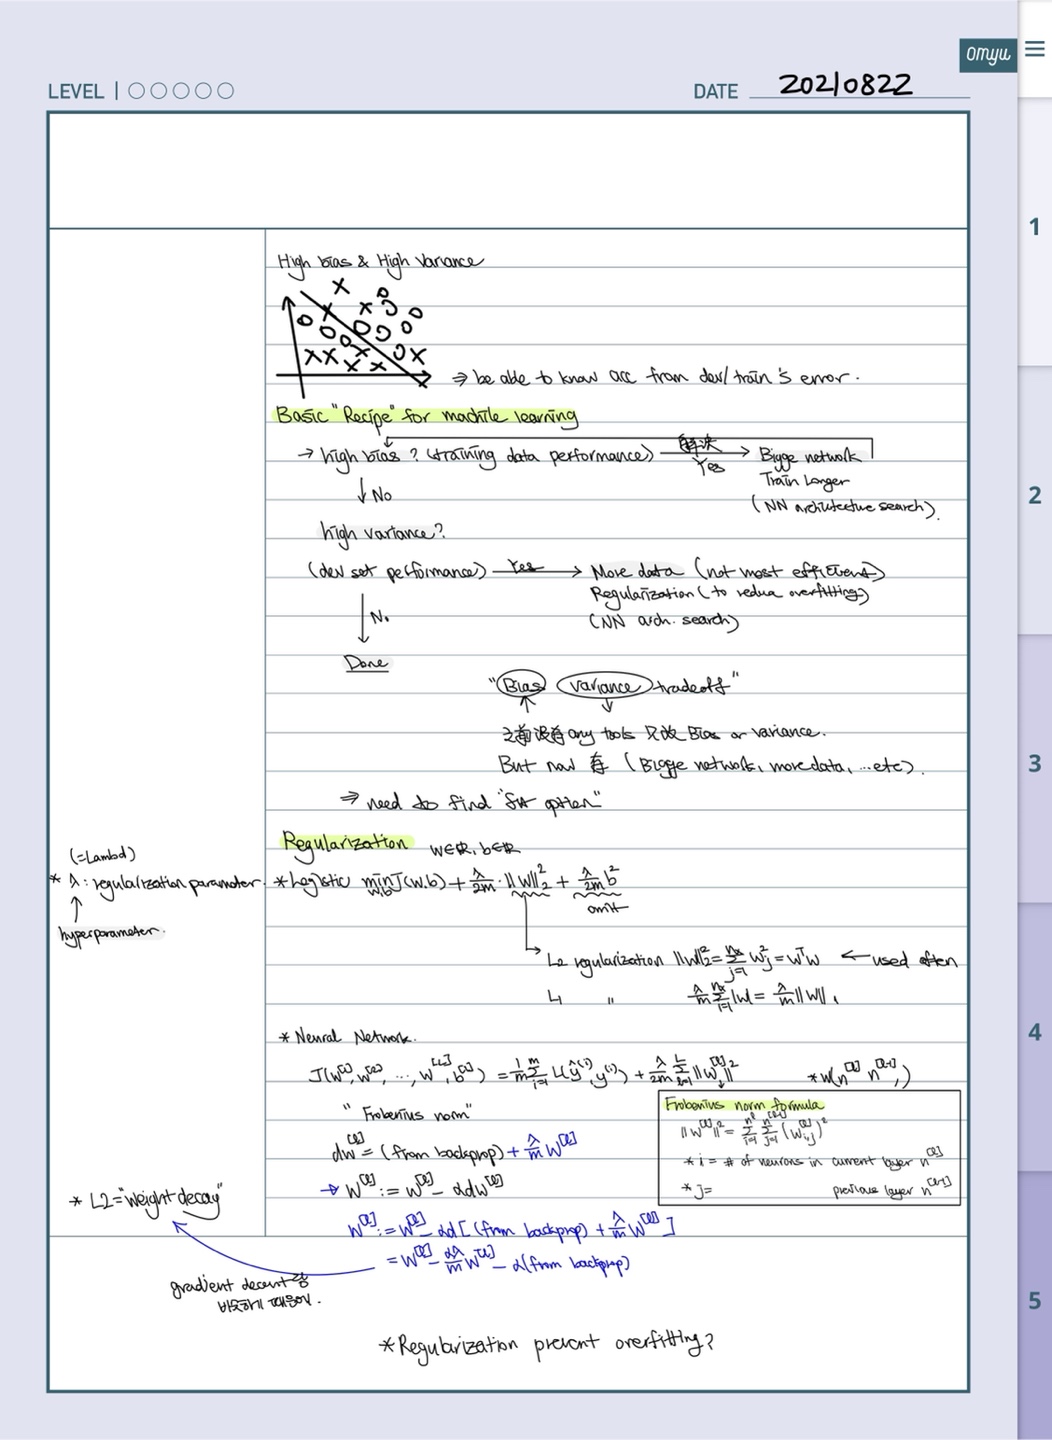 omyu
LEVEL | ○○○○○
DATE 20210822
1
2
3
4
5
High bias & High Variance
⇒ be able to know acc from dev/train's error.
Basic "Recipe" for machile learning
→ high bias? (training data performance) 解決 Yes → Bigge network
Train Longer
(NN architecture search).
↓ No
high variance?
(dev set performance) Yes → More data (not most efficient)
Regularization (to reduce overfitting)
(NN arch. search)
↓ No
Done
"Bias variance tradeoff"
之前沒有 any tools 只改 Bias or variance.
But now 有 (Bigge network, more data, ... etc).
⇒ need to find "
Regularization w∈ℝ, b∈ℝ
(=Lambd)
* λ: regularization parameter.
↑
hyperparameter.
* Logistic min w,b J(w,b) + λ/2m · ||w||²₂ + λ/2m b²
omit
L₂ regularization ||w||²₂ = Σ_{j=1}^{nx} w²_j = wᵀw ← used often
L₁ " λ/m Σ_{i=1}^{nx} |w| = λ/m ||w||₁
* Neural Network.
J(w^[1], w^[2], ..., w^[L], b^[1]) = 1/m Σ_{i=1}^{m} L(ŷ^(i), y^(i)) + λ/2m Σ_{l=1}^{L} ||w^[l]||² * w(n^[l] n^[l-1],)
"Frobenius norm"
Frobenius norm formula
||w^[l]||² = Σ_{i=1}^{n^l} Σ_{j=1}^{n^[l-1]} (w^[l]_{i,j})²
* i = # of neurons in current layer n^[l]
* j= previous layer n^[l-1]
dw^[l] = (from backprop) + λ/m w^[l]
→ w^[l] := w^[l] - αdw^[l]
* L2="weight decay"
w^[l] := w^[l] - αd[(from backprop) + λ/m w^[l]]
= w^[l] - αλ/m w^[l] - α(from backprop)
gradient decent랑
비슷하게 때문에.
* Regularization prevent overfitting?